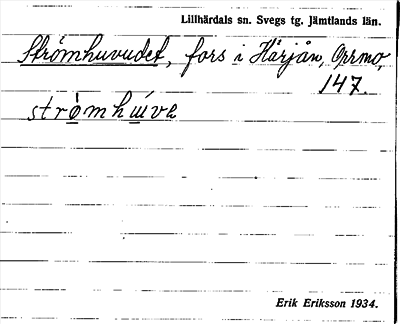 Lillhärdals sn. Svegs tg. Jämtlands län.
Strömhuvudet, fors i Härjån, Orrmo,
147.
strö̀mhúve
Erik Eriksson 1934.